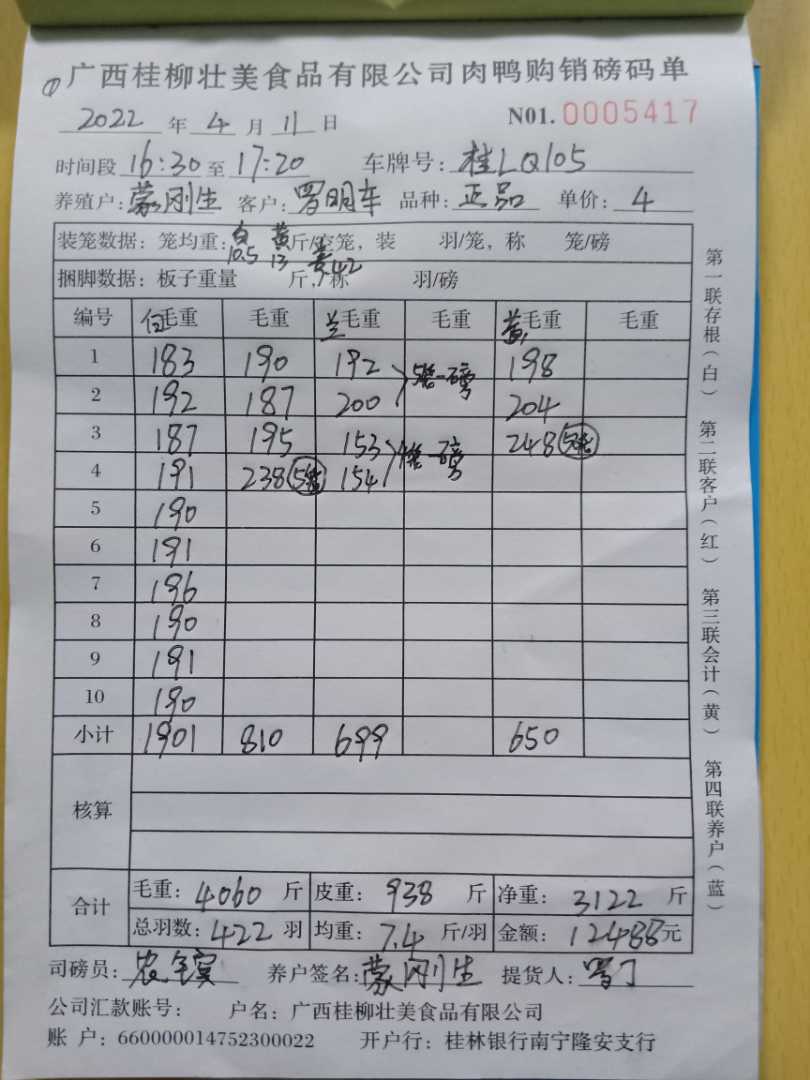 ① 广西桂柳壮美食品有限公司肉鸭购销磅码单
2022 年 4 月 11 日 N01. 0005417
时间段 16:30 至 17:20 车牌号: 桂LQ105
养殖户: 蒙刚生 客户: 罗明车 品种: 正品 单价: 4
装笼数据: 笼均重: 白10.5 黄13 斤/空笼, 装 羽/笼, 称 笼/磅
捆脚数据: 板子重量 斤, 称 羽/磅
编号 白毛重 毛重 兰毛重 毛重 黄毛重 毛重
1 183 190 192 5笼一磅 198
2 192 187 200 204
3 187 195 153 一磅 248 5笼
4 191 238 5笼 154
5 190
6 191
7 196
8 190
9 191
10 190
小计 1901 810 699 650
核算
合计 毛重: 4060 斤 皮重: 938 斤 净重: 3122 斤
总羽数: 422 羽 均重: 7.4 斤/羽 金额: 12488 元
司磅员: 农 养户签名: 蒙刚生 提货人: 罗
公司汇款账号: 户名: 广西桂柳壮美食品有限公司
账 户: 660000014752300022 开户行: 桂林银行南宁隆安支行
第一联存根(白) 第二联客户(红) 第三联会计(黄) 第四联养户(蓝)